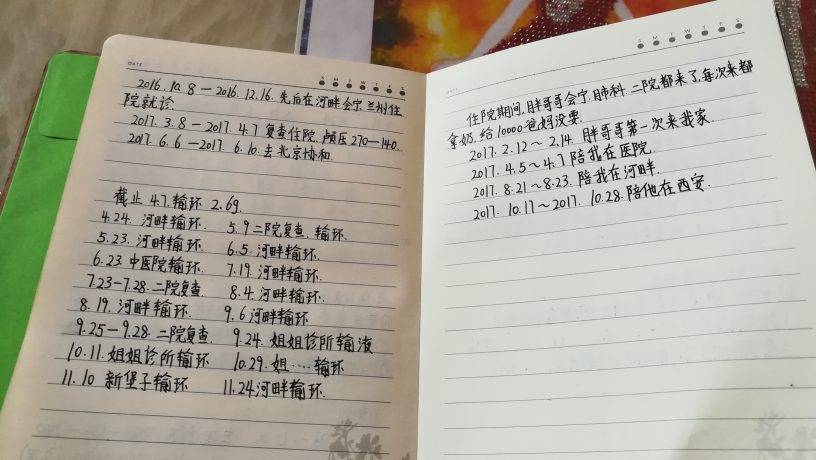 DATE
S M T W T F S
2016.10.8-2016.12.16.先后在河畔.会宁.兰州住
院就诊.
2017.3.8-2017.4.7复查住院.颅压270-140.
2017.6.6-2017.6.10.去北京协和.
截止4.7.输环2.6g.
4.24.河畔输环. 5.9二院复查.输环.
5.23.河畔输环. 6.5.河畔输环.
6.23中医院输环. 7.19.河畔输环.
7.23-7.28.二院复查. 8.4.河畔输环.
8.19.河畔输环. 9.6河畔输环
9.25-9.28.二院复查. 9.24.姐姐诊所输液
10.11.姐姐诊所输环 10.29.姐····输环
11.10新堡子输环 11.24河畔输环.
S M T W T F S
DATE
住院期间.胖哥哥会宁.肺科.二院都来了,每次来都
拿奶.给10000爸妈没要.
2017.2.12~2.14.胖哥哥第一次来我家.
2017.4.5~4.7陪我在医院.
2017.8.21~8.23.陪我在河畔.
2017.10.17~2017.10.28.陪他在西安.